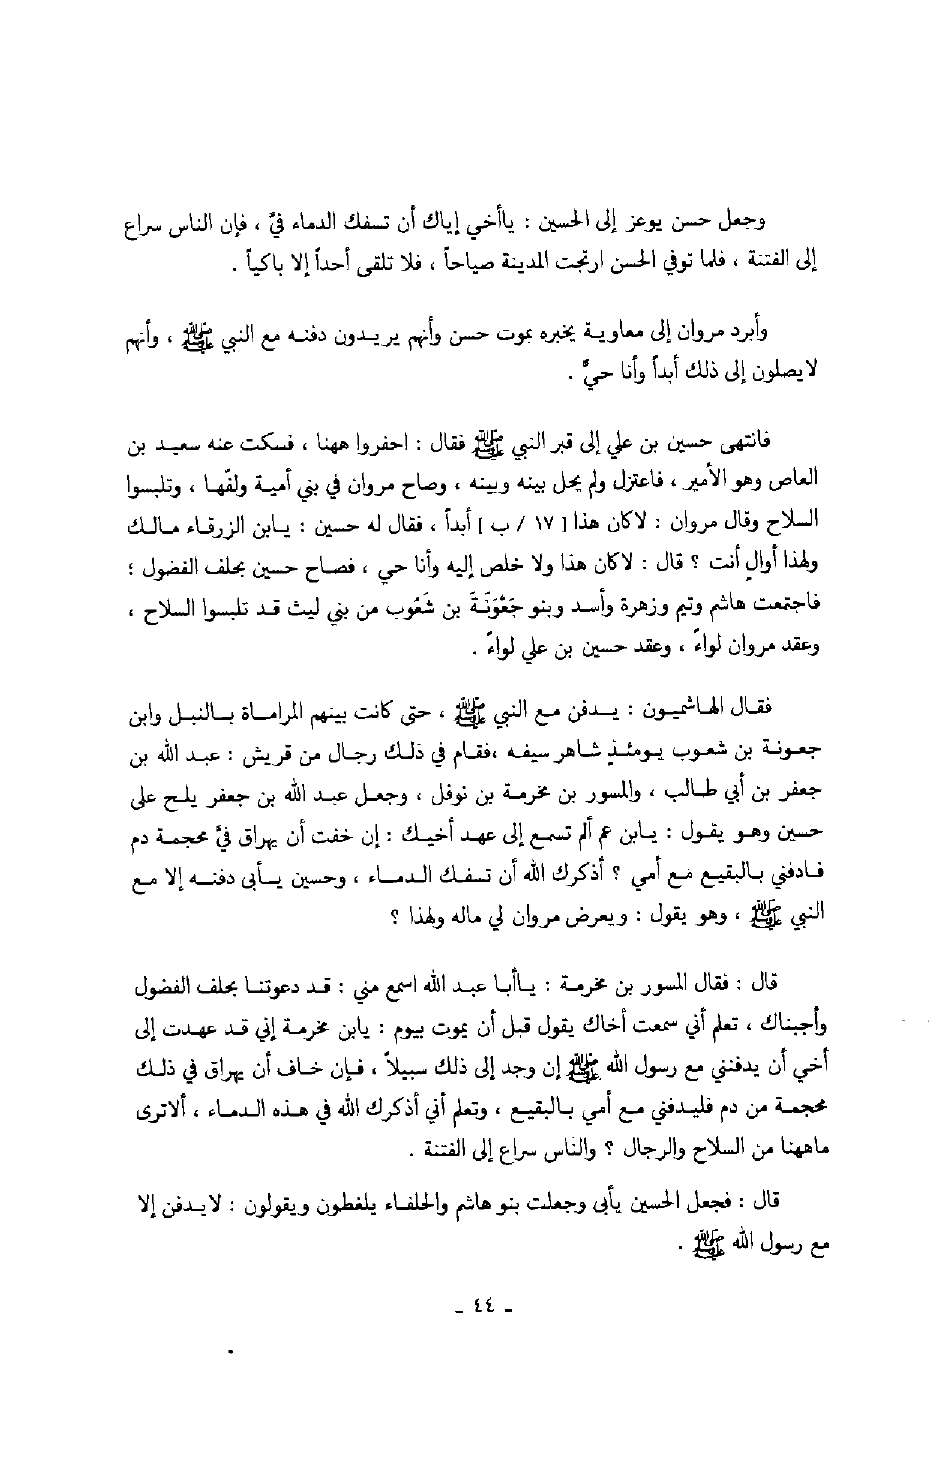 وجعل حسن يوعز إلى الحسين : ياأخي إياك أن تسفك الدماء فيَّ ، فإن الناس سراع
إلى الفتنة ، فلما توفي الحسن ارتجت المدينة صياحاً ، فلا تلقى أحداً إلا باكياً .
وأبرد مروان إلى معاوية يخبره بموت حسن وأنهم يريدون دفنه مع النبي ﷺ ، وأنهم
لايصلون إلى ذلك أبداً وأنا حيٌّ .
فانتهى حسين بن علي إلى قبر النبي ﷺ فقال : احفروا ههنا ، فسكت عنه سعيد بن
العاص وهو الأمير ، فاعتزل ولم يحل بينه وبينه ، وصاح مروان في بني أمية ولفّها ، وتلبسوا
السلاح وقال مروان : لاكان هذا [ ١٧ / ب ] أبداً ، فقال له حسين : يابن الزرقاء مالك
ولهذا أوالٍ أنت ؟ قال : لاكان هذا ولا خلص إليه وأنا حي ، فصاح حسين بحلف الفضول ؛
فاجتمعت هاشم وتيم وزهرة وأسد وبنو جَعْوَنَةَ بن شَعُوب من بني ليث قد تلبسوا السلاح ،
وعقد مروان لواءً ، وعقد حسين بن علي لواءً .
فقال الهاشميون : يدفن مع النبي ﷺ ، حتى كانت بينهم المراماة بالنبل وابن
جعونة بن شعوب يومئذٍ شاهر سيفه ،فقام في ذلك رجال من قريش : عبد الله بن
جعفر بن أبي طالب ، والمسور بن مخرمة بن نوفل ، وجعل عبد الله بن جعفر يلح على
حسين وهو يقول : يابن عم ألم تسمع إلى عهد أخيك : إن خفت أن يهراق فيَّ محجمة دم
فادفني بالبقيع مع أمي ؟ أذكرك الله أن تسفك الدماء ، وحسين يأبى دفنه إلا مع
النبي ﷺ ، وهو يقول : ويعرض مروان لي ماله ولهذا ؟
قال : فقال المسور بن مخرمة : ياأبا عبد الله اسمع مني : قد دعوتنا بحلف الفضول
وأجبناك ، تعلم أني سمعت أخاك يقول قبل أن يموت بيوم : يابن مخرمة إني قد عهدت إلى
أخي أن يدفنني مع رسول الله ﷺ إن وجد إلى ذلك سبيلاً ، فإن خاف أن يهراق في ذلك
محجمة من دم فليدفني مع أمي بالبقيع ، وتعلم أني أذكرك الله في هذه الدماء ، ألاترى
ماههنا من السلاح والرجال ؟ والناس سراع إلى الفتنة .
قال : فجعل الحسين يأبى وجعلت بنو هاشم والحلفاء يلغطون ويقولون : لايدفن إلا
مع رسول الله ﷺ .
- ٤٤ -